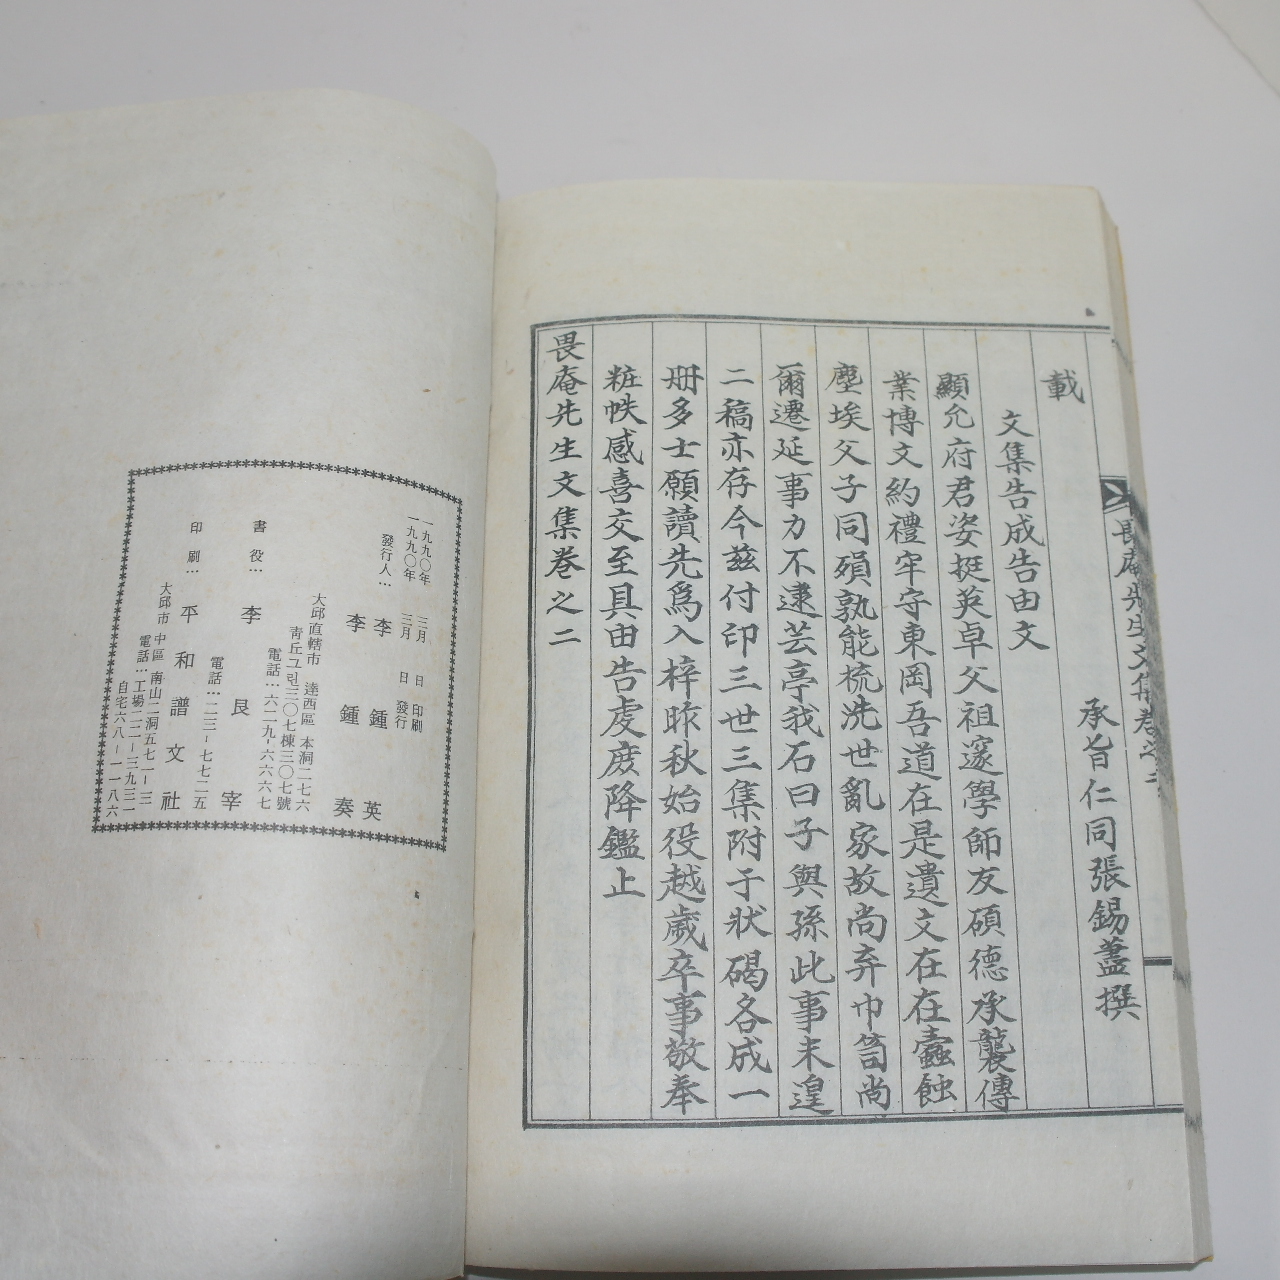 畏庵先生文集卷之二
載
承旨仁同張錫藎撰
文集告成告由文
顯允府君姿挺英卓父祖邃學師友碩德承襲傳
業博文約禮牢守東岡吾道在是遺文在在蠹蝕
塵埃父子同殞孰能梳洗世亂家故尚弃巾笥尚
爾遷延事力不逮芸亭我石曰子與孫此事未遑
二稿亦存今玆付印三世三集附于狀碣各成一
册多士願讀先爲入梓昨秋始役越歲卒事敬奉
粧帙感喜交至具由告虔庶降鑑止
畏庵先生文集卷之二
一九九〇年 三月 日 印刷
一九九〇年 三月 日 發行
發行人… 李鍾英
李鍾奏
大邱直轄市 達西區 本洞二七六
靑丘그린三〇七棟三〇七號
電話…六二九-六六六七
書役… 李良宰
電話…二三-七七二五
印刷… 平和譜文社
大邱市 中區 南山二洞五七一-三
電話…工場二二-三九三二
自宅六八-一一八六